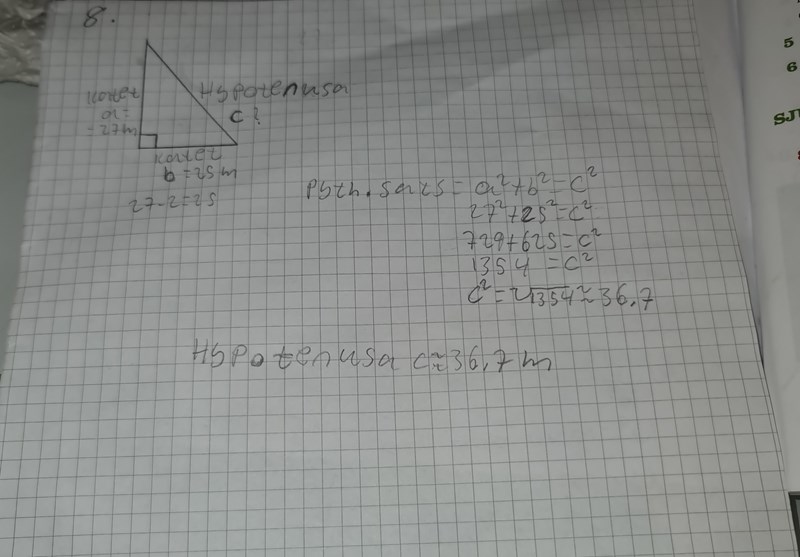 8.
Hypotenusa
c?
katet
a =
= 27m
katet
b = 25 m
27-2=25
Pyth. sats = a²+b²=c²
27²+25²=c²
729+625=c²
1354 =c²
c²=√1354≈36.7
Hypotenusa c≈36,7 m
5
6